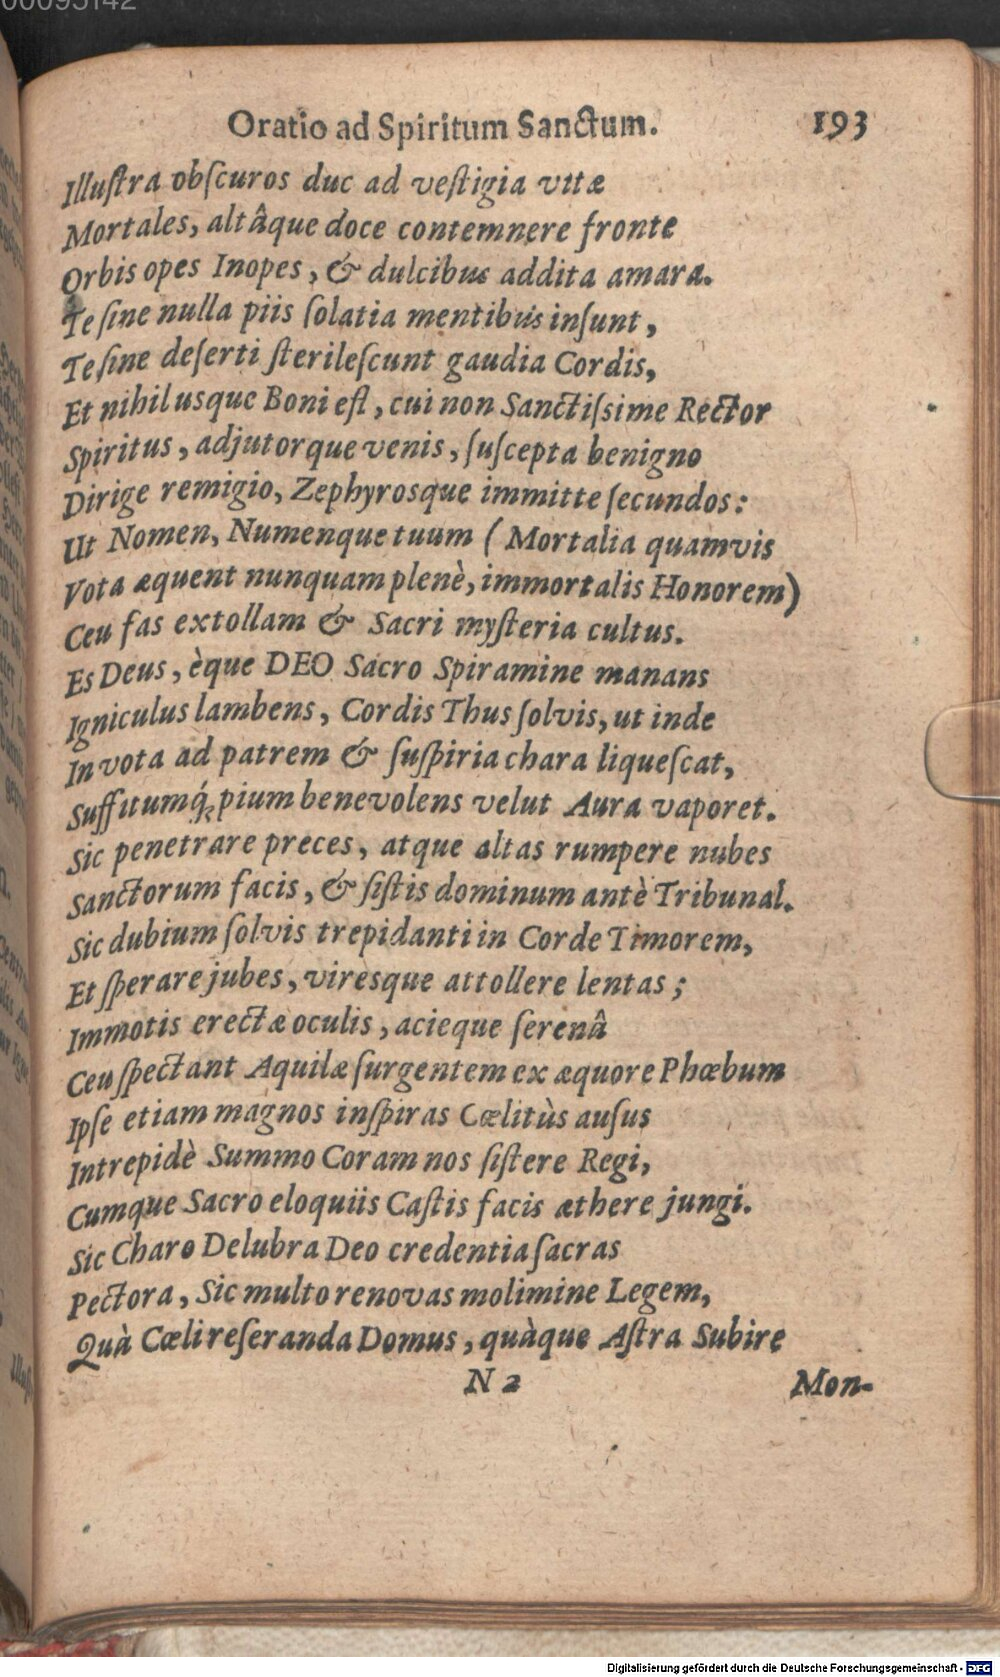 Oratio ad Spiritum Sanctum. 193
Illuſtra obſcuros duc ad veſtigia vitæ
Mortales, altâque doce contemnere fronte
Orbis opes Inopes, & dulcibus addita amara.
Te ſine nulla piis ſolatia mentibus inſunt,
Te ſine deſerti ſterileſcunt gaudia Cordis,
Et nihil usque Boni eſt, cui non Sanctiſsime Rector
Spiritus, adjutorque venis, ſuſcepta benigno
Dirige remigio, Zephyrosque immitte ſecundos:
Ut Nomen, Numenque tuum (Mortalia quamvis
Vota æquent nunquam plenè, immortalis Honorem)
Ceu fas extollam & Sacri myſteria cultus.
Es Deus, èque DEO Sacro Spiramine manans
Igniculus lambens, Cordis Thus ſolvis, ut inde
In vota ad patrem & ſuſpiria chara liqueſcat,
Suffitumq́; pium benevolens velut Aura vaporet.
Sic penetrare preces, atque altas rumpere nubes
Sanctorum facis, & ſiſtis dominum antè Tribunal.
Sic dubium ſolvis trepidanti in Corde Timorem,
Et ſperare jubes, viresque attollere lentas;
Immotis erectæ oculis, acieque ſerenâ
Ceu ſpectant Aquilæ ſurgentem ex æquore Phœbum
Ipſe etiam magnos inſpiras Cœlitùs auſus
Intrepidè Summo Coram nos ſiſtere Regi,
Cumque Sacro eloquiis Caſtis facis æthere jungi.
Sic Charo Delubra Deo credentia ſacras
Pectora, Sic multo renovas molimine Legem,
Quà Cœli reſeranda Domus, quàque Aſtra Subire
N 2 Mon-
Digitalisierung gefördert durch die Deutsche Forschungsgemeinschaft - DFG